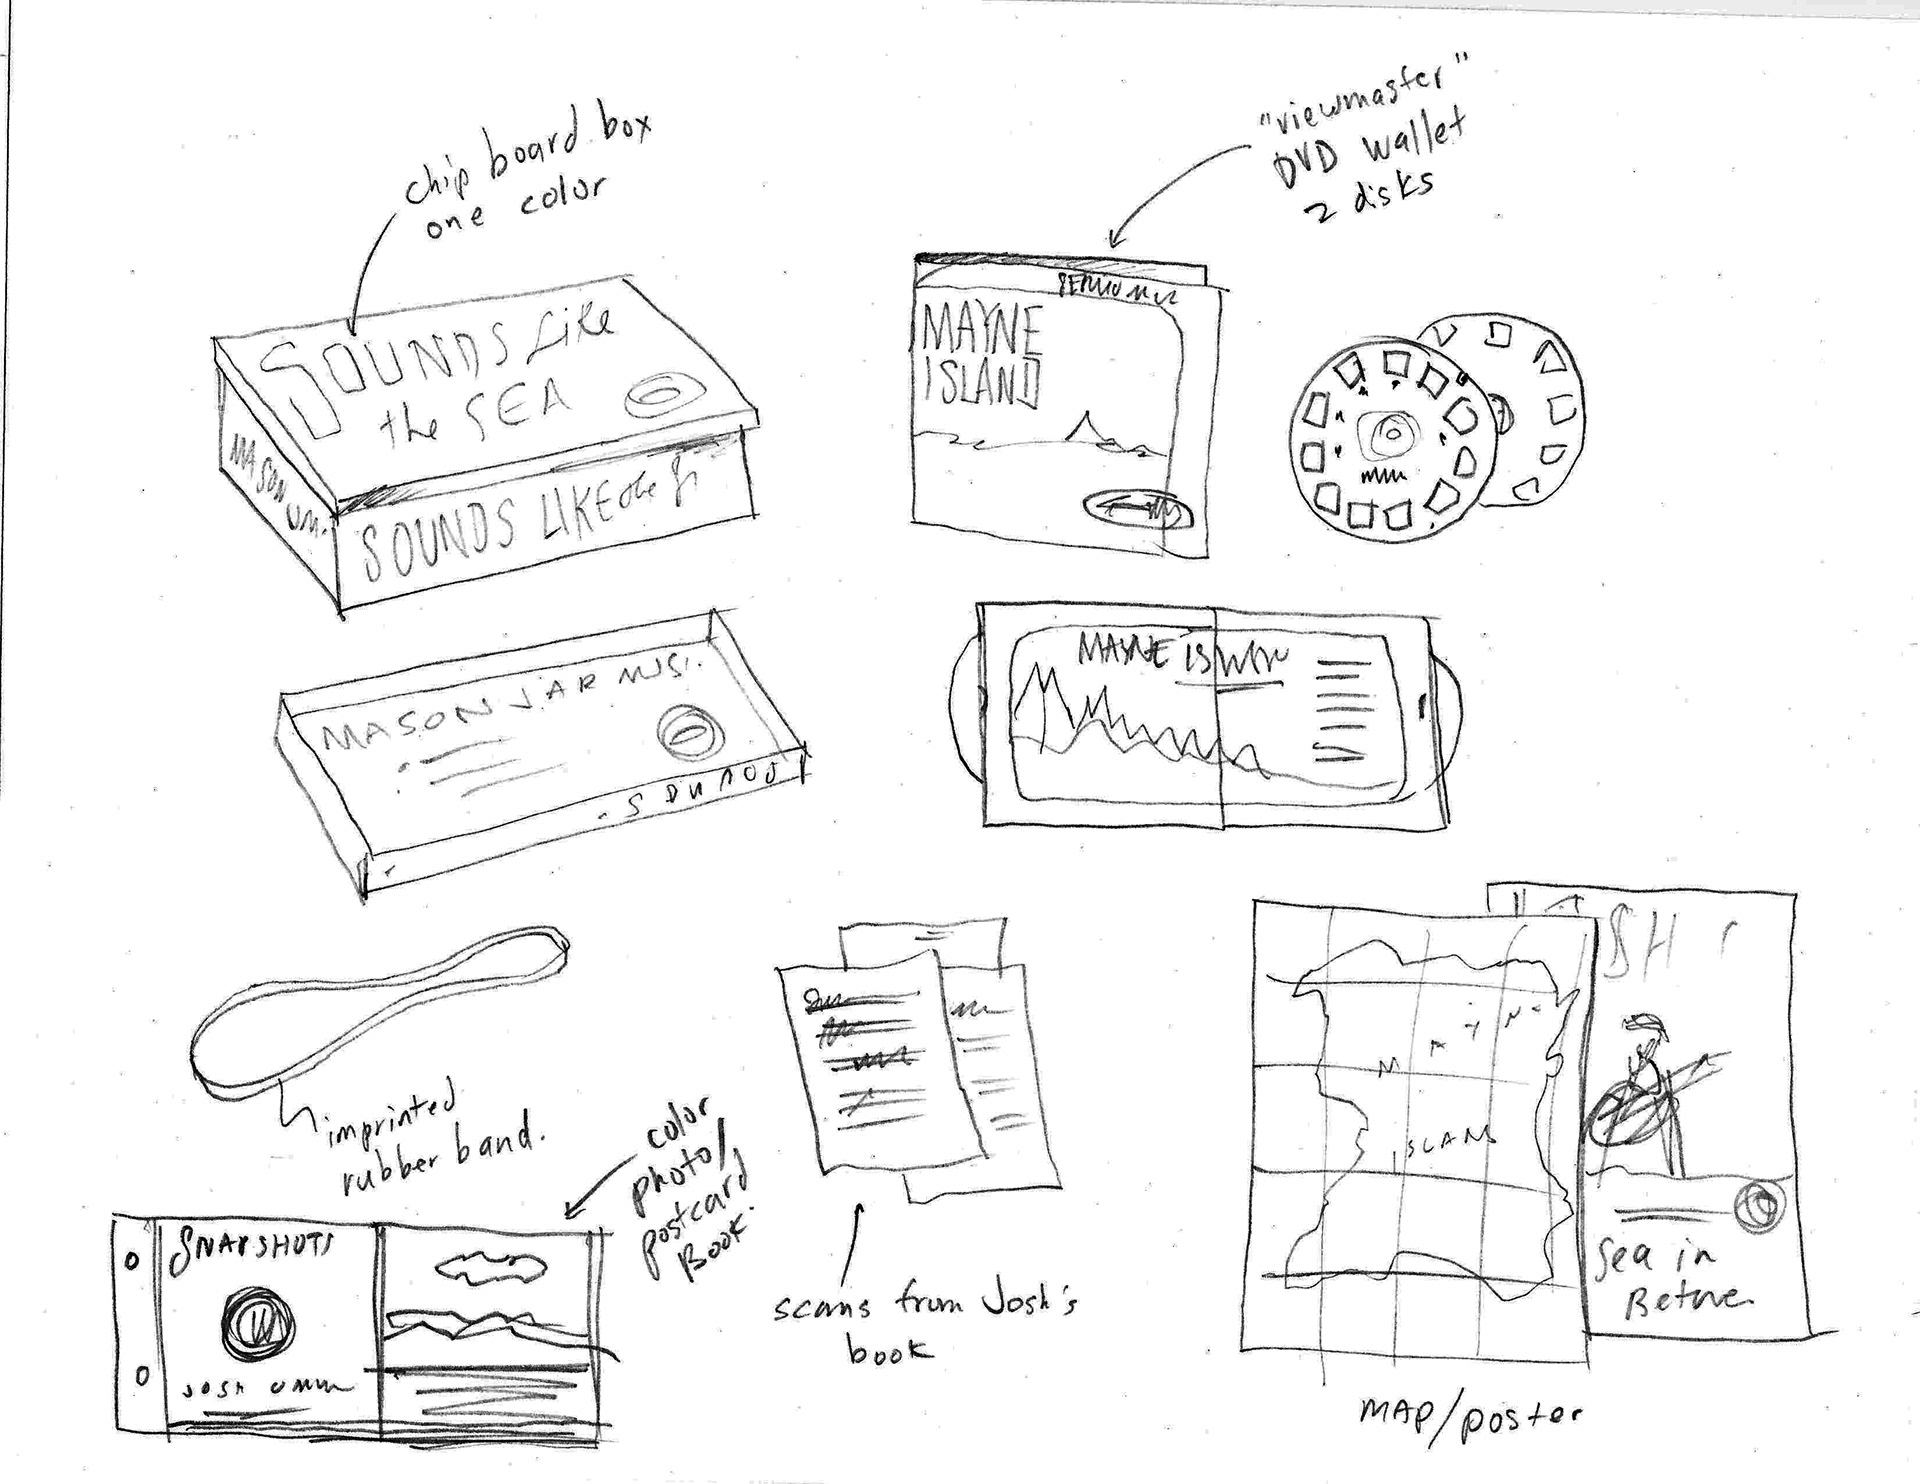 chip board box
one color
SOUNDS Like
the SEA
MASON
SOUNDS LIKE the
"viewmaster"
DVD wallet
2 disks
MAYNE
ISLAND
MASON JAR MUSI.
SOUNDS
MAYNE
imprinted
rubber band.
color
photo/
postcard
Book.
SNAPSHOTS
JOSH
scans from Josh's
book
MAYNE
ISLAND
Sea in
MAP/poster